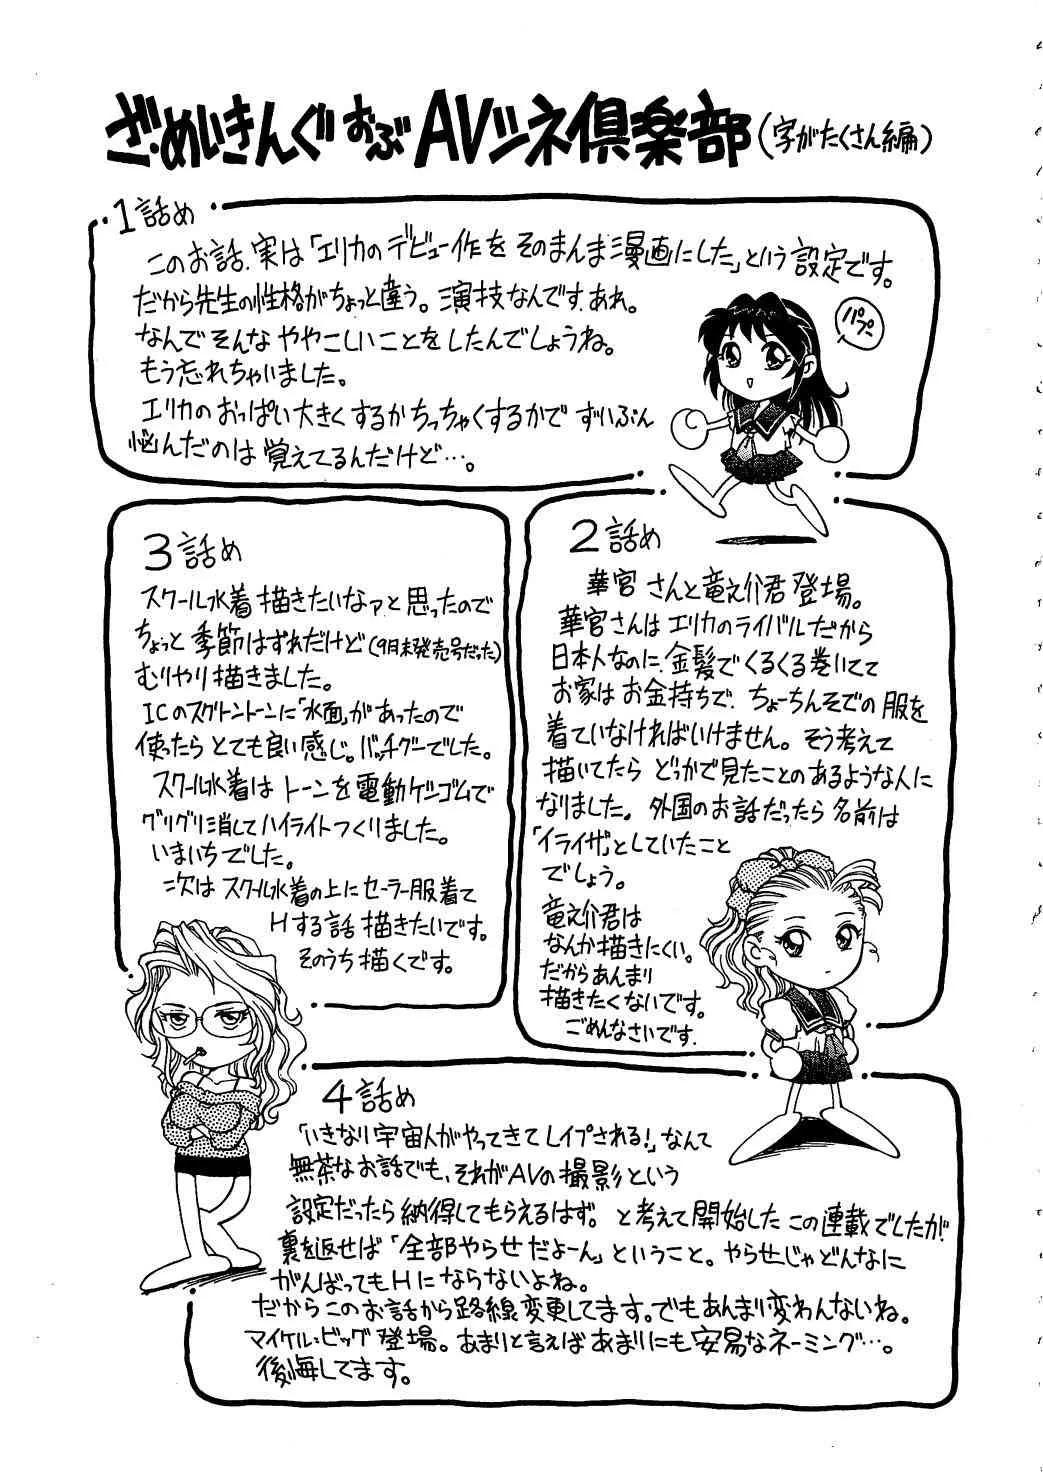 ざ・めいきんぐ おぶ AVシネ倶楽部(字がたくさん編)
1話め
このお話、実は「エリカのデビュー作をそのまんま漫画にした」という設定です。
だから先生の性格がちょっと違う。演技なんです、あれ。
なんでそんなややこしいことをしたんでしょうね。
もう忘れちゃいました。
エリカのおっぱい大きくするかちっちゃくするかでずいぶん
悩んだのは覚えてるんだけど…。
パプ
2話め
華宮さんと竜之介君登場。
華宮さんはエリカのライバルだから
日本人なのに、金髪でくるくる巻いてて
お家はお金持ちで、ちょーちんそでの服を
着ていなければいけません。そう考えて
描いてたらどっかで見たことのあるような人に
なりました。外国のお話だったら名前は
「イライザ」としていたこと
でしょう。
竜之介君は
なんか描きにくい。
だからあんまり
描きたくないです。
ごめんなさいです。
3話め
スクール水着描きたいなァと思ったので
ちょっと季節はずれだけど(9月末発売号だった)
むりやり描きました。
ICのスグトントーンに「水面」があったので
使ったらとても良い感じ。バッチグーでした。
スクール水着はトーンを電動ケシゴムで
グリグリ消してハイライトつくりました。
いまいちでした。
次はスクール水着の上にセーラー服着て
Hする話描きたいです。
そのうち描くです。
4話め
「いきなり宇宙人がやってきてレイプされる!」なんて
無茶なお話でも、それがAVの撮影という
設定だったら納得してもらえるはず。と考えて開始したこの連載でしたが
裏を返せば「全部やらせだよーん」ということ。やらせじゃどんなに
がんばってもHにならないよね。
だからこのお話から路線変更してます。でもあんまり変わんないね。
マイケル=ビッグ登場。あまりと言えばあまりにも安易なネーミング…。
後悔してます。